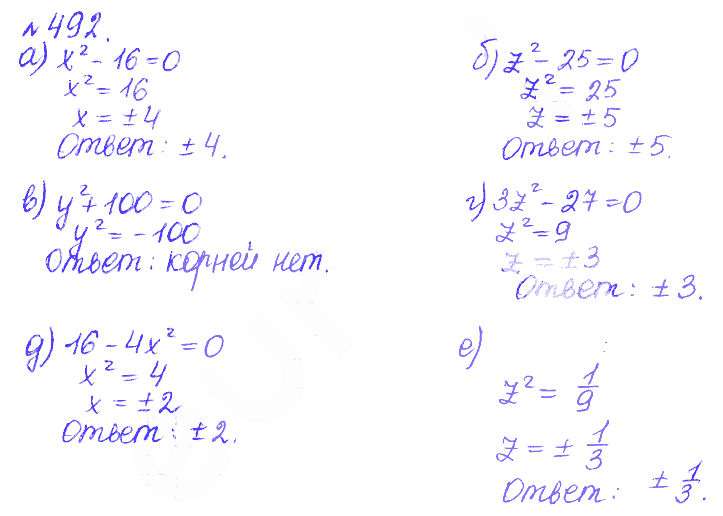 № 492.
а) x² - 16 = 0
x² = 16
x = ±4
Ответ: ±4.
б) z² - 25 = 0
z² = 25
z = ±5
Ответ: ±5.
в) y² + 100 = 0
y² = -100
Ответ: корней нет.
г) 3z² - 27 = 0
z² = 9
z = ±3
Ответ: ±3.
д) 16 - 4x² = 0
x² = 4
x = ±2
Ответ: ±2.
е)
z² = 1/9
z = ± 1/3
Ответ: ± 1/3.